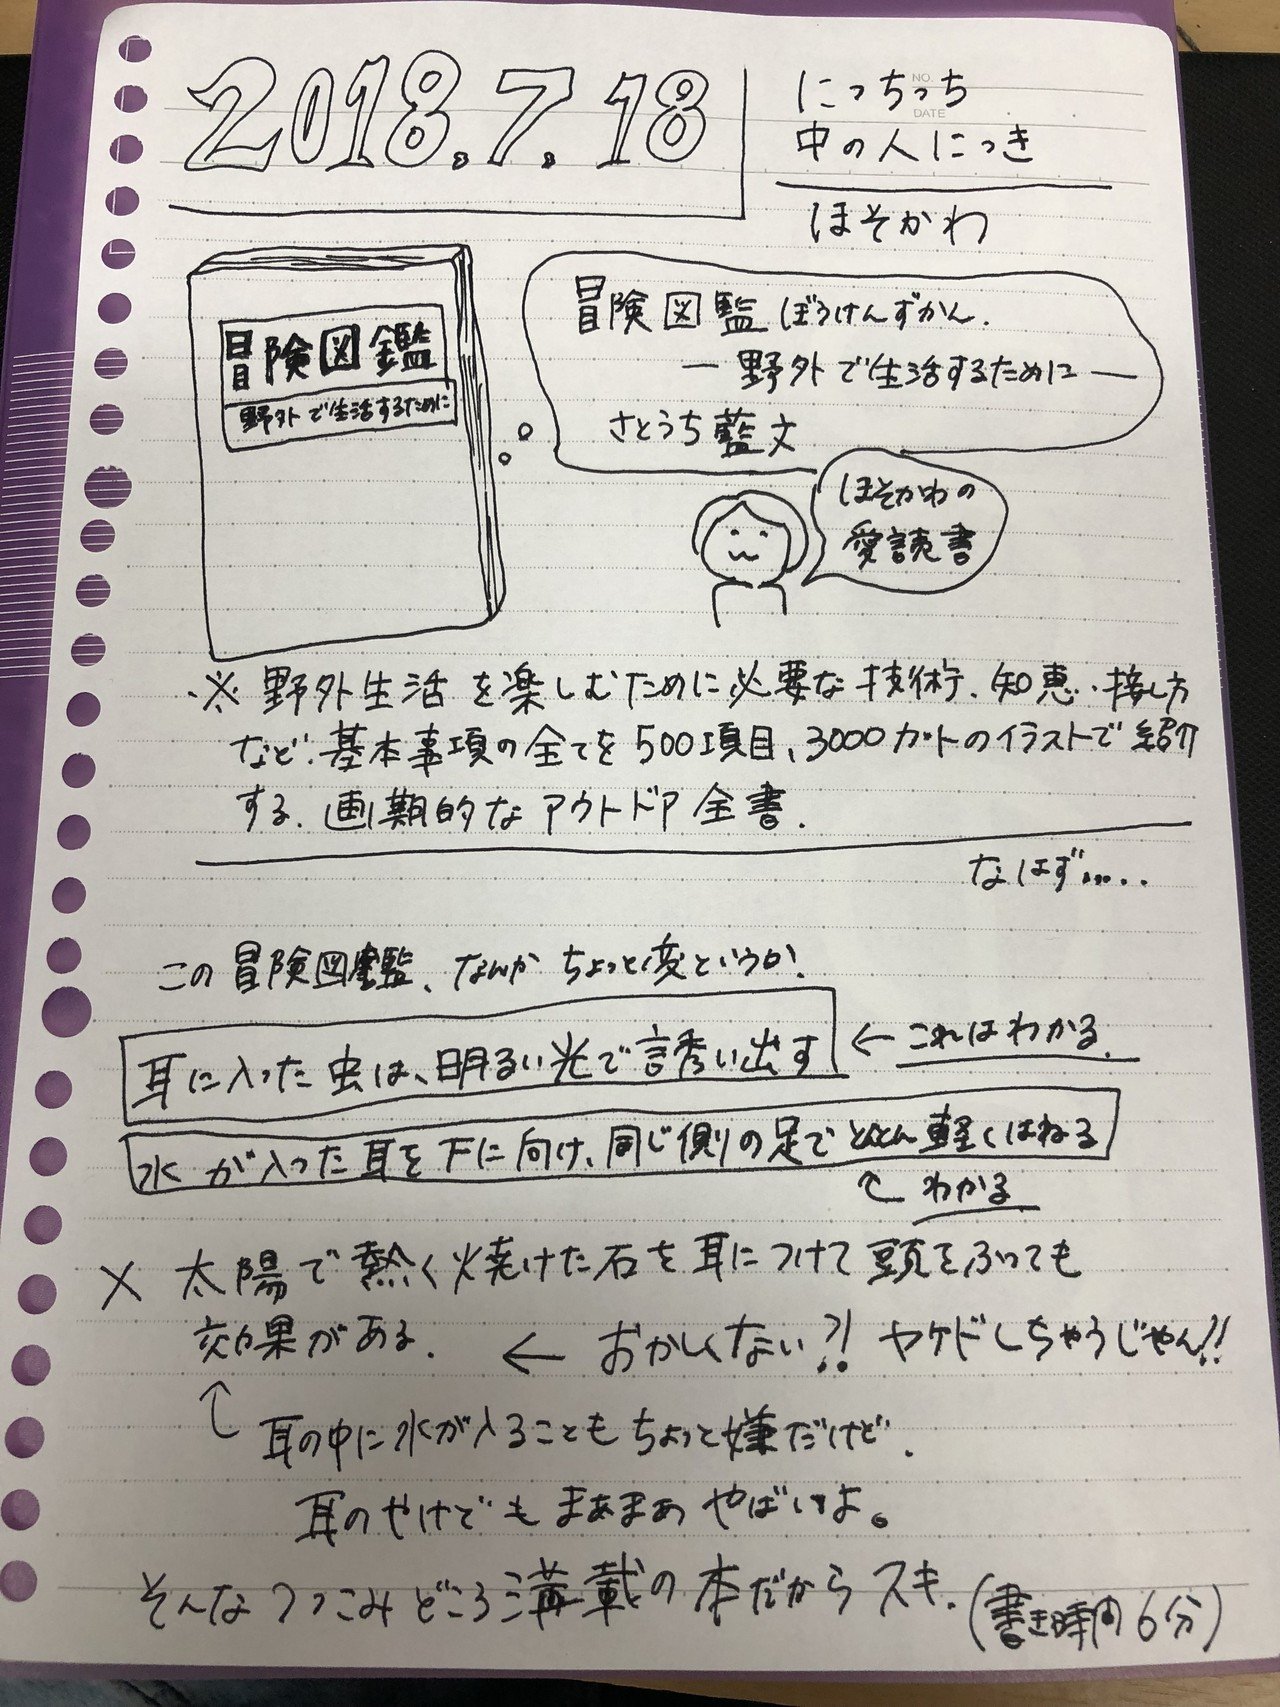 2018.7.18
にっちっち
中の人にっき
ほそかわ
NO.
DATE
冒険図鑑
野外で生活するために
冒険図監 ぼうけんずかん.
― 野外で生活するために ―
さとうち藍 文
ほそかわの
愛読書
※ 野外生活を楽しむために必要な技術、知恵・接し方
など、基本事項の全てを500項目、3000カットのイラストで紹介
する、画期的なアウトドア全書.
なはず.....
この冒険図鑑、なんかちょっと変というか、
耳に入った虫は、明るい光で誘い出す ← これはわかる.
水が入った耳を下に向け、同じ側の足でとんとん軽くはねる
↑ わかる
× 太陽で熱く焼けた石を耳につけて頭をふっても
効果がある. ← おかしくない?! ヤケドしちゃうじゃん!!
↑ 耳の中に水が入ることもちょっと嫌だけど.
耳のやけどもまあまあやばいよ。
そんなつっこみどころ満載の本だからスキ.
(書き時間6分)